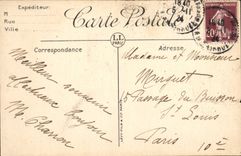 Expéditeur
M
Rue
Ville
Carte Postale
LL
PARIS
1840
5-11
24
Correspondance
Adresse
Meilleur souvenir
affectueux bonjour
Madame et Monsieur
Muguet
15 Passage du Buisson
St Louis
Paris
10e